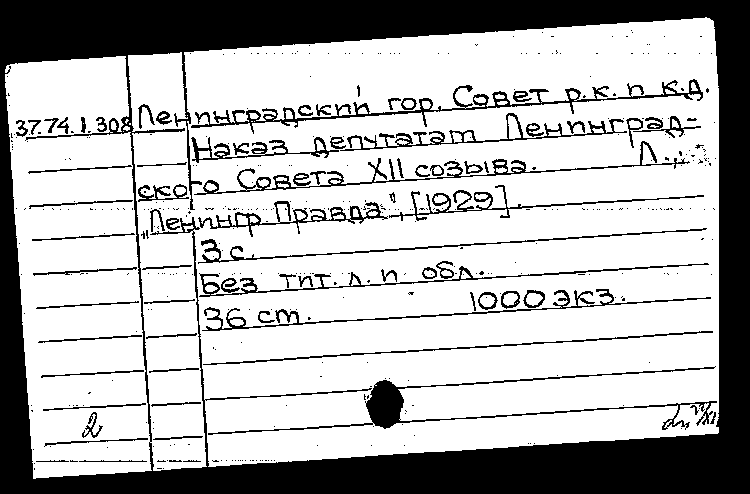 37.74.1.308 Ленинградский гор. Совет р.к. и к.д.
Наказ депутатам Ленинград-
ского Совета XII созыва. Л.,
„Ленингр. Правда", [1929].
3 с.
Без тит. л. и обл.
36 см. 1000 экз.
2